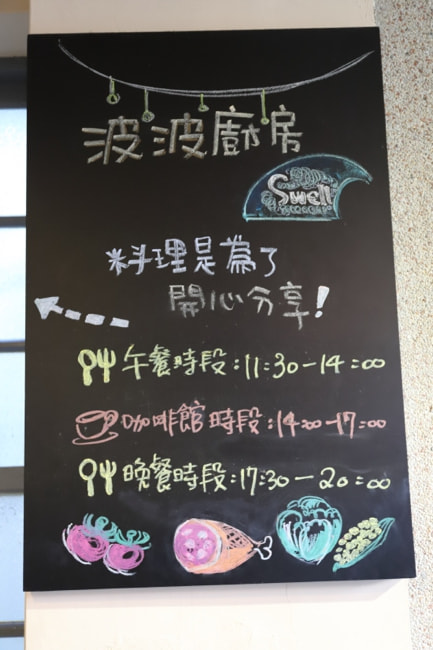 波波廚房
Swell
料理是為了
開心分享!
午餐時段:11:30-14:00
咖啡館時段:14:00-17:00
晚餐時段:17:30-20:00